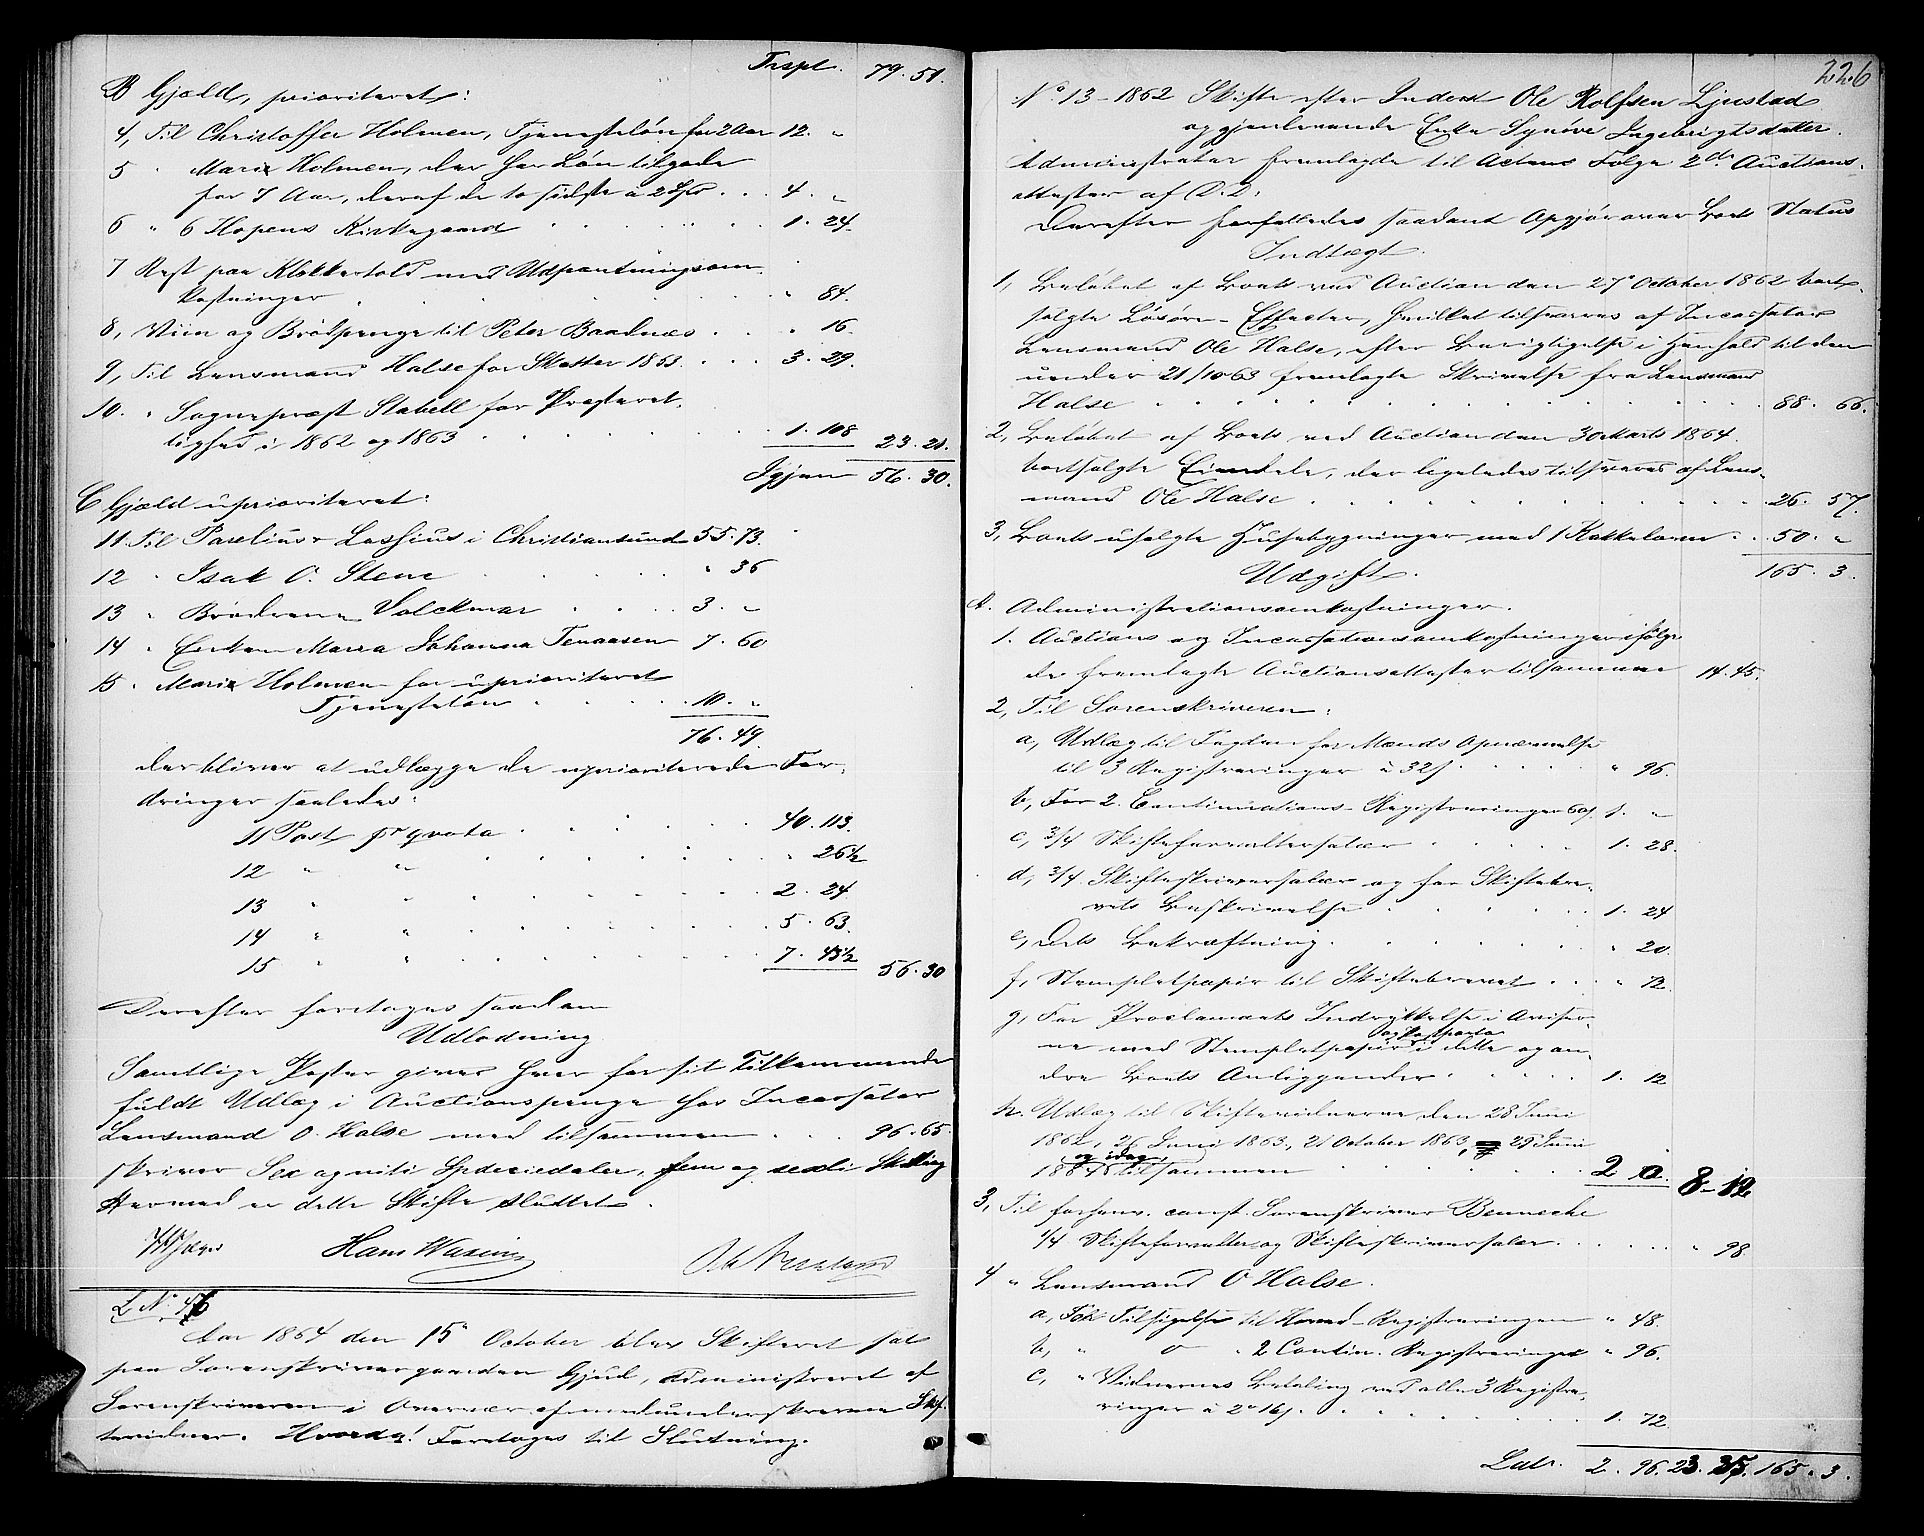 Trspt. 79. 51.
B Gjæld, prioriteret:
4, Til Christoffer Holmen, Tjenesteløn for 2 Aar 12. "
5 " Marie Holmen, der har Løn tilgode
for 7 Aar, deraf de to sidste a 2 Spd . . . 4. "
6 " 6 Hopens Kirkegaard . . . 1. 24.
7 Rest paa Klokkertold med Udpantningsom-
kostninger . . . " 84.
8, Viin og Brødpenge til Peter Baadnæs . . " 16.
9, Til Lensmand Halse for Skatter 1863 . . . 3. 29.
10. " Sognepræst Stabell for Præsteret-
tighed i 1862 og 1863 . . . 1. 108 23. 21.
Igjen 56. 30.
C Gjæld uprioriteret:
11 Til Parelius & Lossius i Christiansund 55. 73.
12 " Isak O. Stene . . . " 36
13 " Brødrene Volckmar . . . 3. "
14 " Enken Maria Johanna Tenaasen 7. 60
15 " Marie Holmen for uprioriteret
Tjenesteløn . . . 10. "
76. 49.
der bliver at udlægge de uprioriterede For-
dringer saaledes:
11 Post pr qvota . . . 40. 113.
12 " " . . . " 26 1/2
13 " " . . . 2. 24.
14 " " . . . 5. 63.
15 " " . . . 7. 43 1/2 56. 30
Derefter foretoges saadan
Udlodning
Samtlige Poster gives hver for sit Tilkommende
fuldt Udlæg i Auctionspenge hos Incassator
Lensmand O. Halse med tilsammen . . . 96. 65.
skriver Sex og niti Speciedaler, fem og sexti Skilling
Hermed er dette Skifte sluttet.
Hans Wasing
L No 46
Aar 1864 den 15de October blev Skifteret sat
paa Sorenskrivergaarden Gjul, administreret af
Sorenskriveren i Overvær af medunderskrevne Skif-
tevidner. Hvorda! Foretoges til Slutning.
226
No 13 - 1862 Skifte efter Inderst Ole Rolfsen Ljustad
og gjenlevende Enke Synøve Ingebrigtsdatter.
Administrator fremlagde til Actens Følge 2de Auctions-
attester af D. D:
Derefter forfattedes saadant Opgjør over Boets Status
Indtægt.
1, Beløbet af Boets ved Auction den 27de October 1862 bort-
solgte Løsøre-Effecter, hvilket tilsvares af Incassator
Lensmand Ole Halse, efter Berigtigelse i Henhold til den
under 21/10 63 fremlagte Skrivelse fra Lensmand
Halse . . . 88. 66.
2, Beløbet af Boets ved Auction den 30 Marts 1864
bortsolgte Eiendele, der ligeledes tilsvares af Lens-
mand Ole Halse . . . 26. 57.
3, Boets usolgte Husebygninger med 1 Kakkelovn . . 50. "
165. 3.
Udgift.
A. Administrationsomkostninger.
1. Auctions og Incassationsomkostninger ifølge
de fremlagte Auctionsattester tilsammen 14. 45.
2, Til Sorenskriveren:
a, Udlæg til Fogden for Mænds Opnævnelse
til 3 Registreringer à 32 s . . . " 96.
b, For 2 Continuations-Registreringer 60 s 1. "
c, 3/4 Skifteforvaltersalær . . . 1. 28.
d, 3/4 Skifteskriversalær og for Skiftebre-
vets Beskrivelse . . . 1. 24
e, Dets Bekræftning . . . " 20.
f, Stempletpapir til Skiftebrevet . . . " 12.
g, For Proclamaets Indrykkelse i Aviser-
ne med Stempletpapir og Postporto i dette og an-
dre Boets Anliggender . . . 1. 12
h. Udlæg til Skiftevidnerne den 28 Juni
1862, 26 Juni 1863, 21 October 1863, 29 Juni
1864 og idag tilsammen . . . 2 0. 8-12
3, Til forhenv. const. Sorenskriver Bennecke
1/4 Skifteforvalter og Skifteskriversalær . . . " 98.
4 " Lensmand O Halse.
a, For Tilsigelse til Hoved-Registreringen " 48.
b, " o " 2 Contin. Registreringer " 96.
c, " Vidnernes Betaling ved alle 3 Registre-
ringer à 2 16 s . . . 1. 72.
Lat. 2. 96. 23. 35. 165. 3.